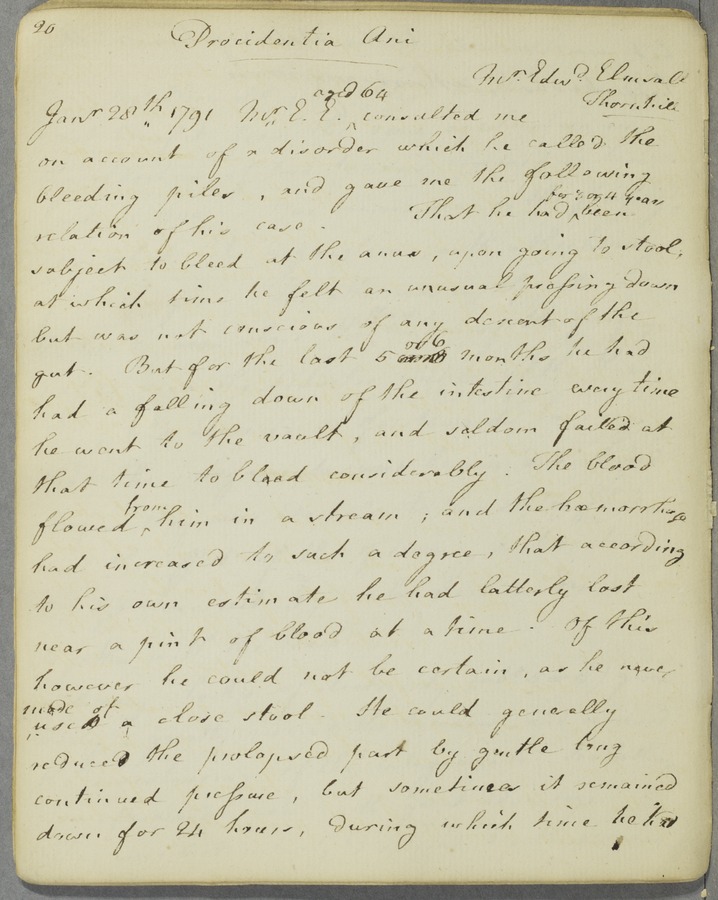 20
Procidentia Ani
Mr. Edwd. Elmsall
Thornhill
aged 64
Jany 28th 1791 Mr. E. E. consulted me
on account of a disorder which he called the
bleeding piles, and gave me the following
relation of his case. That he had for 3 or 4 years been
subject to bleed at the anus, upon going to stool,
at which time he felt an unusual pressing down
but was not conscious of any descent of the
gut. But for the last 5 or 6 months he had
had a falling down of the intestine every time
he went to the vault, and seldom failed at
that time to bleed considerably. The blood
flowed from him in a stream; and the hæmorrhage
had increased to such a degree, that according
to his own estimate he had latterly lost
near a pint of blood at a time. Of this
however he could not be certain, as he never
made use of a close stool. He could generally
reduced the prolapsed part by gentle long
continued pressure, but sometimes it remained
down for 24 hours, during which time he